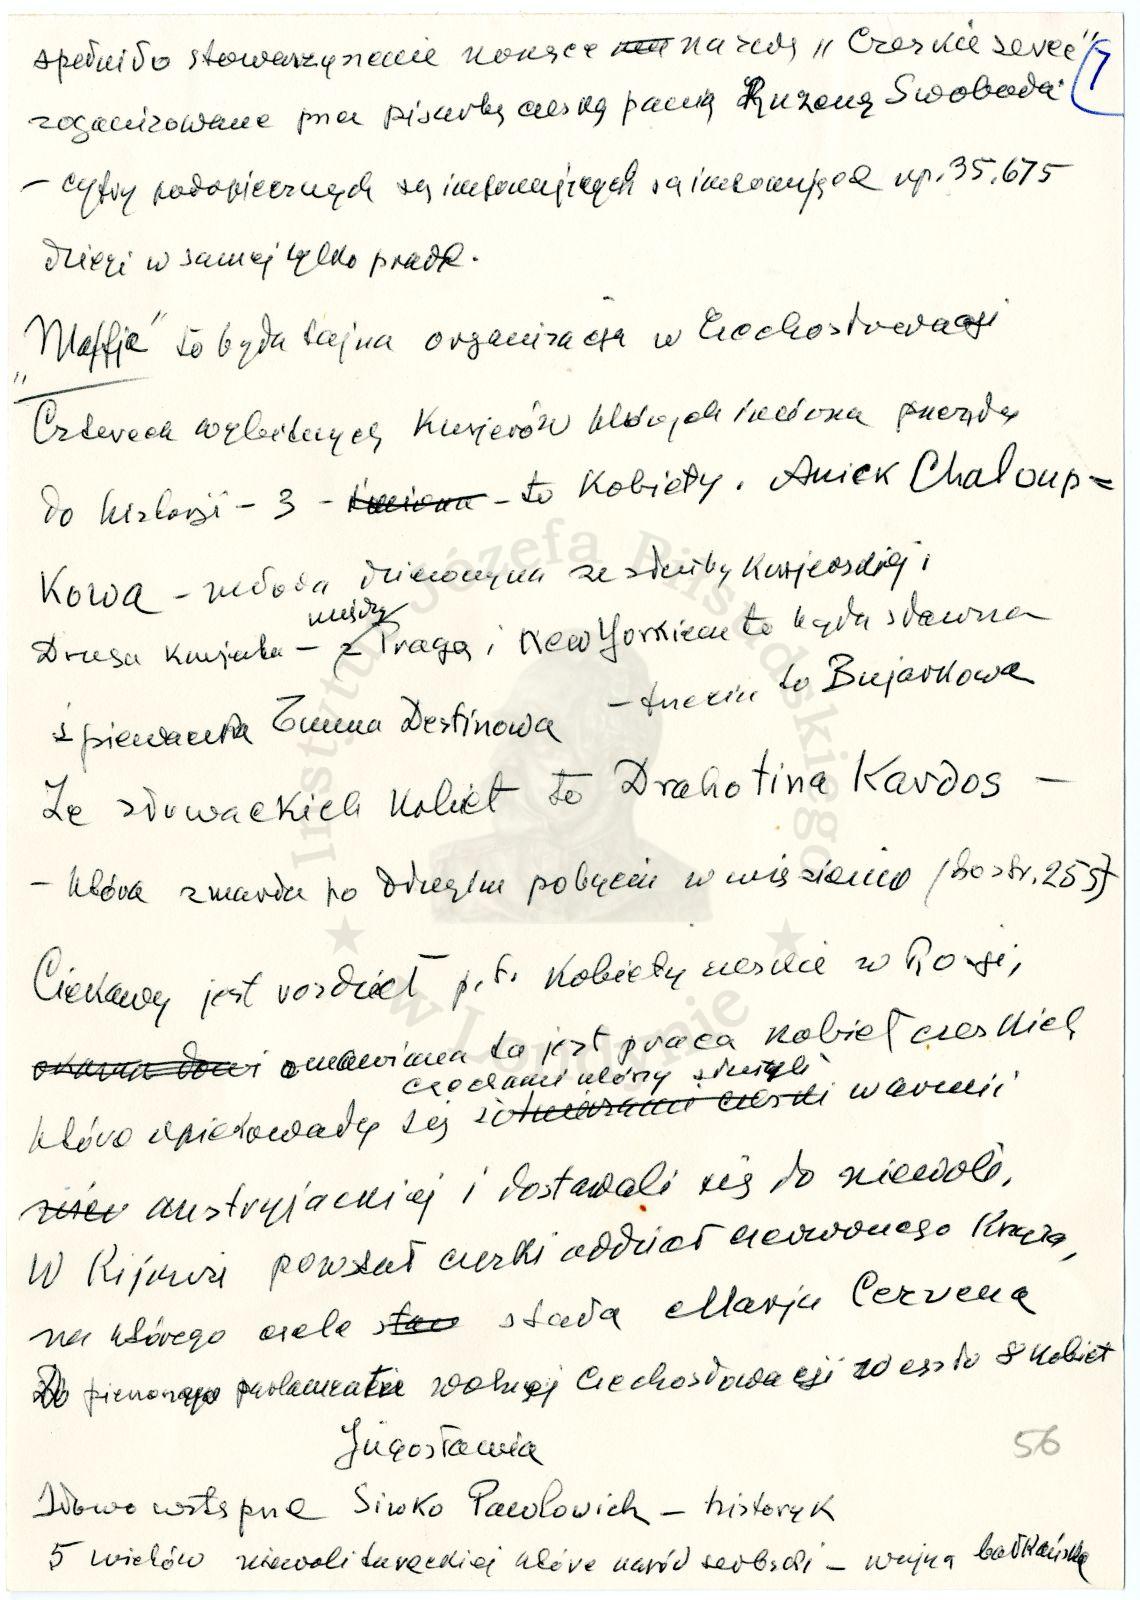 spełniło stowarzyszenie noszące nazwę „Czeskie serce”
7
zoganizowane przez pisarkę czeską panią Ruzeną Swoboda
– cyfry podopiecznych są imponujące np. 35.675
dzieci w samej tylko pradze.
„Maffja” to była tajna organizacja w Czechosłowacji
Czterech wybitnych kurjerów których imiona przejdą
do historji – 3 – to kobiety. Aniek Chaloup=
kowa – młoda dziewczyna ze służby kurjerskiej i
między
Druga kurjerka – Pragą i New Yorkiem to była sławna
śpiewaczka Emma Destinowa – trzecia to Bujarkowa
Ze słowackich kobiet to Drahotina Kardos –
– która zmarła po drugim pobycie w więzieniu (to str. 255)
Ciekawy jest rozdział p.t. Kobiety czeskie w Rosji,
omawiana ta jest praca kobiet czeskich
czechami którzy służyli
które opiekowały się żołnierzami czeski w armii
austryjackiej i dostawali się do niewoli.
W Kijowie powstał czeski oddział czerwonego Krzyża,
na którego czele stała Marja Cervena
Do pierwszego parlamentu wolnej Czechosłowacji weszło 8 kobiet
Jugosławia
56
Słowo wstępne Sinko Pawlowich – historyk
5 wieków niewoli tureckiej które naród serbski – wojna bałkańska
Instytut Józefa Piłsudskiego
w Londynie